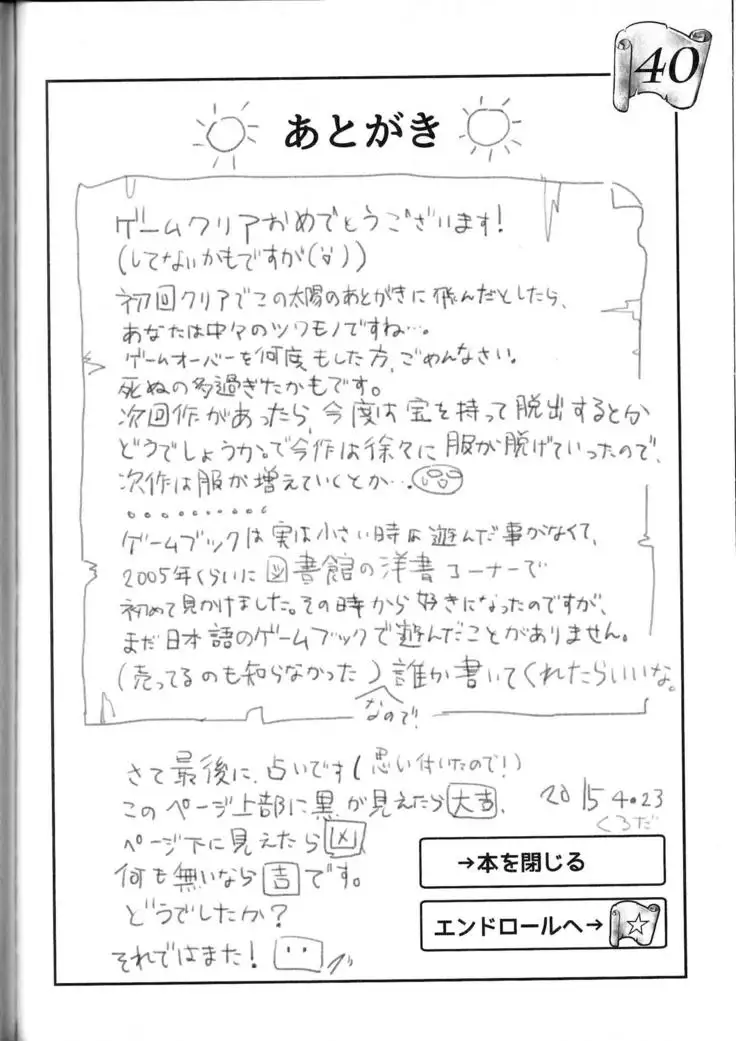 40
あとがき
ゲームクリアおめでとうございます!
(してないかもですが())
初回クリアでこの太陽のあとがきに飛んだとしたら、
あなたは中々のツワモノですね…。
ゲームオーバーを何度もした方、ごめんなさい。
死ぬの多過ぎたかもです。
次回作があったら、今度は宝を持って脱出するとか
どうでしょうか。で今作は徐々に服が脱げていったので、
次作は服が増えていくとか…
ゲームブックは実は小さい時は遊んだ事がなくて、
2005年くらいに図書館の洋書コーナーで
初めて見かけました。その時から好きになったのですが、
まだ日本語のゲームブックで遊んだことがありません。
(売ってるのも知らなかった)誰か書いてくれたらいいな。
なので!
さて最後に、占いです(思い付いたので!)
このページ上部に黒が見えたら大吉、
ページ下に見えたら凶
何も無いなら吉です。
どうでしたか?
それではまた!
2015 4.23
くろだ
→本を閉じる
エンドロールへ→